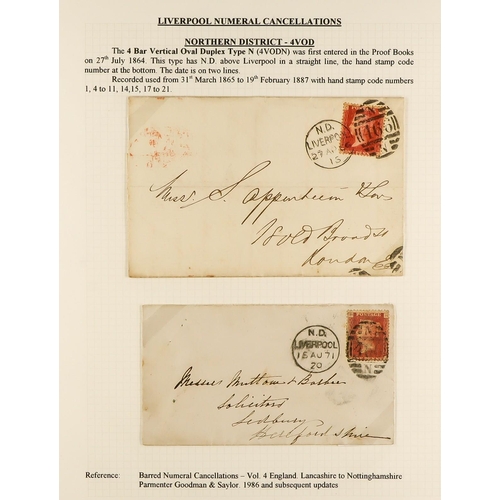 LIVERPOOL NUMERAL CANCELLATIONS
NORTHERN DISTRICT - 4VOD
The 4 Bar Vertical Oval Duplex Type N (4VODN) was first entered in the Proof Books
on 27th July 1864. This type has N.D. above Liverpool in a straight line, the hand stamp code
number at the bottom. The date is on two lines.
Recorded used from 31st March 1865 to 19th February 1887 with hand stamp code numbers
1, 4 to 11, 14,15, 17 to 21.
N.D.
LIVERPOOL
15
N
466
N
Oppenheim & Sons
18 Old Broad St
London
N.D.
LIVERPOOL
18 AU 71
20
Messrs
Solicitors
Ledbury
Reference: Barred Numeral Cancellations – Vol. 4 England. Lancashire to Nottinghamshire
Parmenter Goodman & Saylor. 1986 and subsequent updates